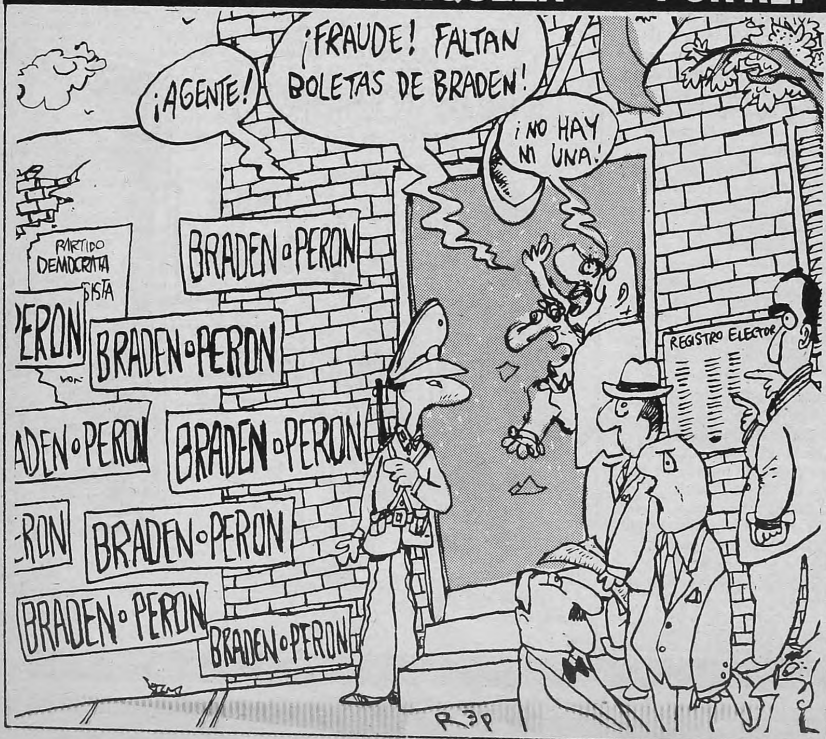 POR REP
¡AGENTE!
¡FRAUDE! FALTAN
BOLETAS DE BRADEN!
¡NO HAY
NI UNA!
PARTIDO
DEMOCRATA
ISTA
BRADEN o PERON
PERON
BRADEN o PERON
ADEN o PERON
BRADEN o PERON
RON
BRADEN o PERON
BRADEN o PERON
BRADEN o PERON
REGISTRO ELECTOR
REP